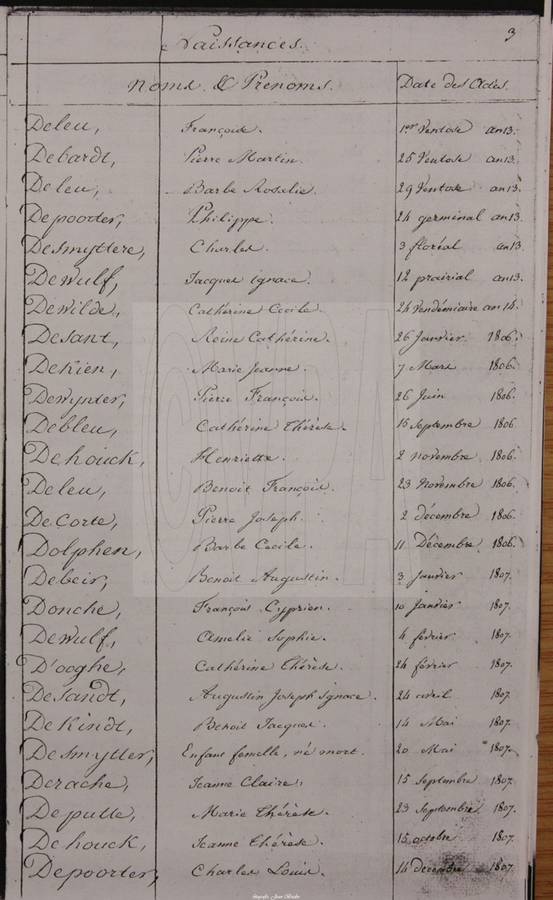 3
Naissances.
Noms & Prenoms. Date des Actes.
Deleu, Françoise. 1er Ventose an 13.
Debardt, Pierre Martin. 25 Ventose an 13.
Deleu, Barbe Rosalie. 29 Ventose an 13.
Depoorter, Philippe. 24 germinal an 13.
Desmyttere, Charles. 3 floréal an 13
Dewulf, Jacques ignace. 12 prairial an 13.
Dewilde, Cathérine Cecile. 24 Vendémiaire an 14.
Desant, Reine Cathérine. 26 Janvier 1806.
DeKien, Marie Jeanne. 7 Mars 1806.
Dewynter, Pierre François. 26 Juin 1806.
Debleu, Cathérine Thérèse. 15 Septembre 1806
Dehouck, Henriette. 2 Novembre 1806.
Deleu, Benoit François. 23 Novembre 1806.
DeCorte, Pierre Joseph. 2 décembre 1806.
Dolphen, Barbe Cecile. 11 Décembre 1806.
Debeir, Benoit Augustin. 3 Janvier 1807.
Donche, François Cyprien. 10 Janvier 1807.
Dewulf, Amelie Sophie. 4 février 1807.
D'ooghe, Cathérine Thérèse. 24 février 1807.
DeSandt, Augustin Joseph Ignace. 24 avril 1807
DeKindt, Benoit Jacques. 14 Mai 1807.
Desmytter, Enfant femelle, né mort. 20 Mai 1807.
Derache, Jeanne Claire, 15 Septembre 1807.
Deputte, Marie Thérèse. 23 Septembre 1807.
Dehouck, Jeanne Thérèse. 15 octobre 1807.
Depoorter, Charles Louis. 14 décembre 1807.